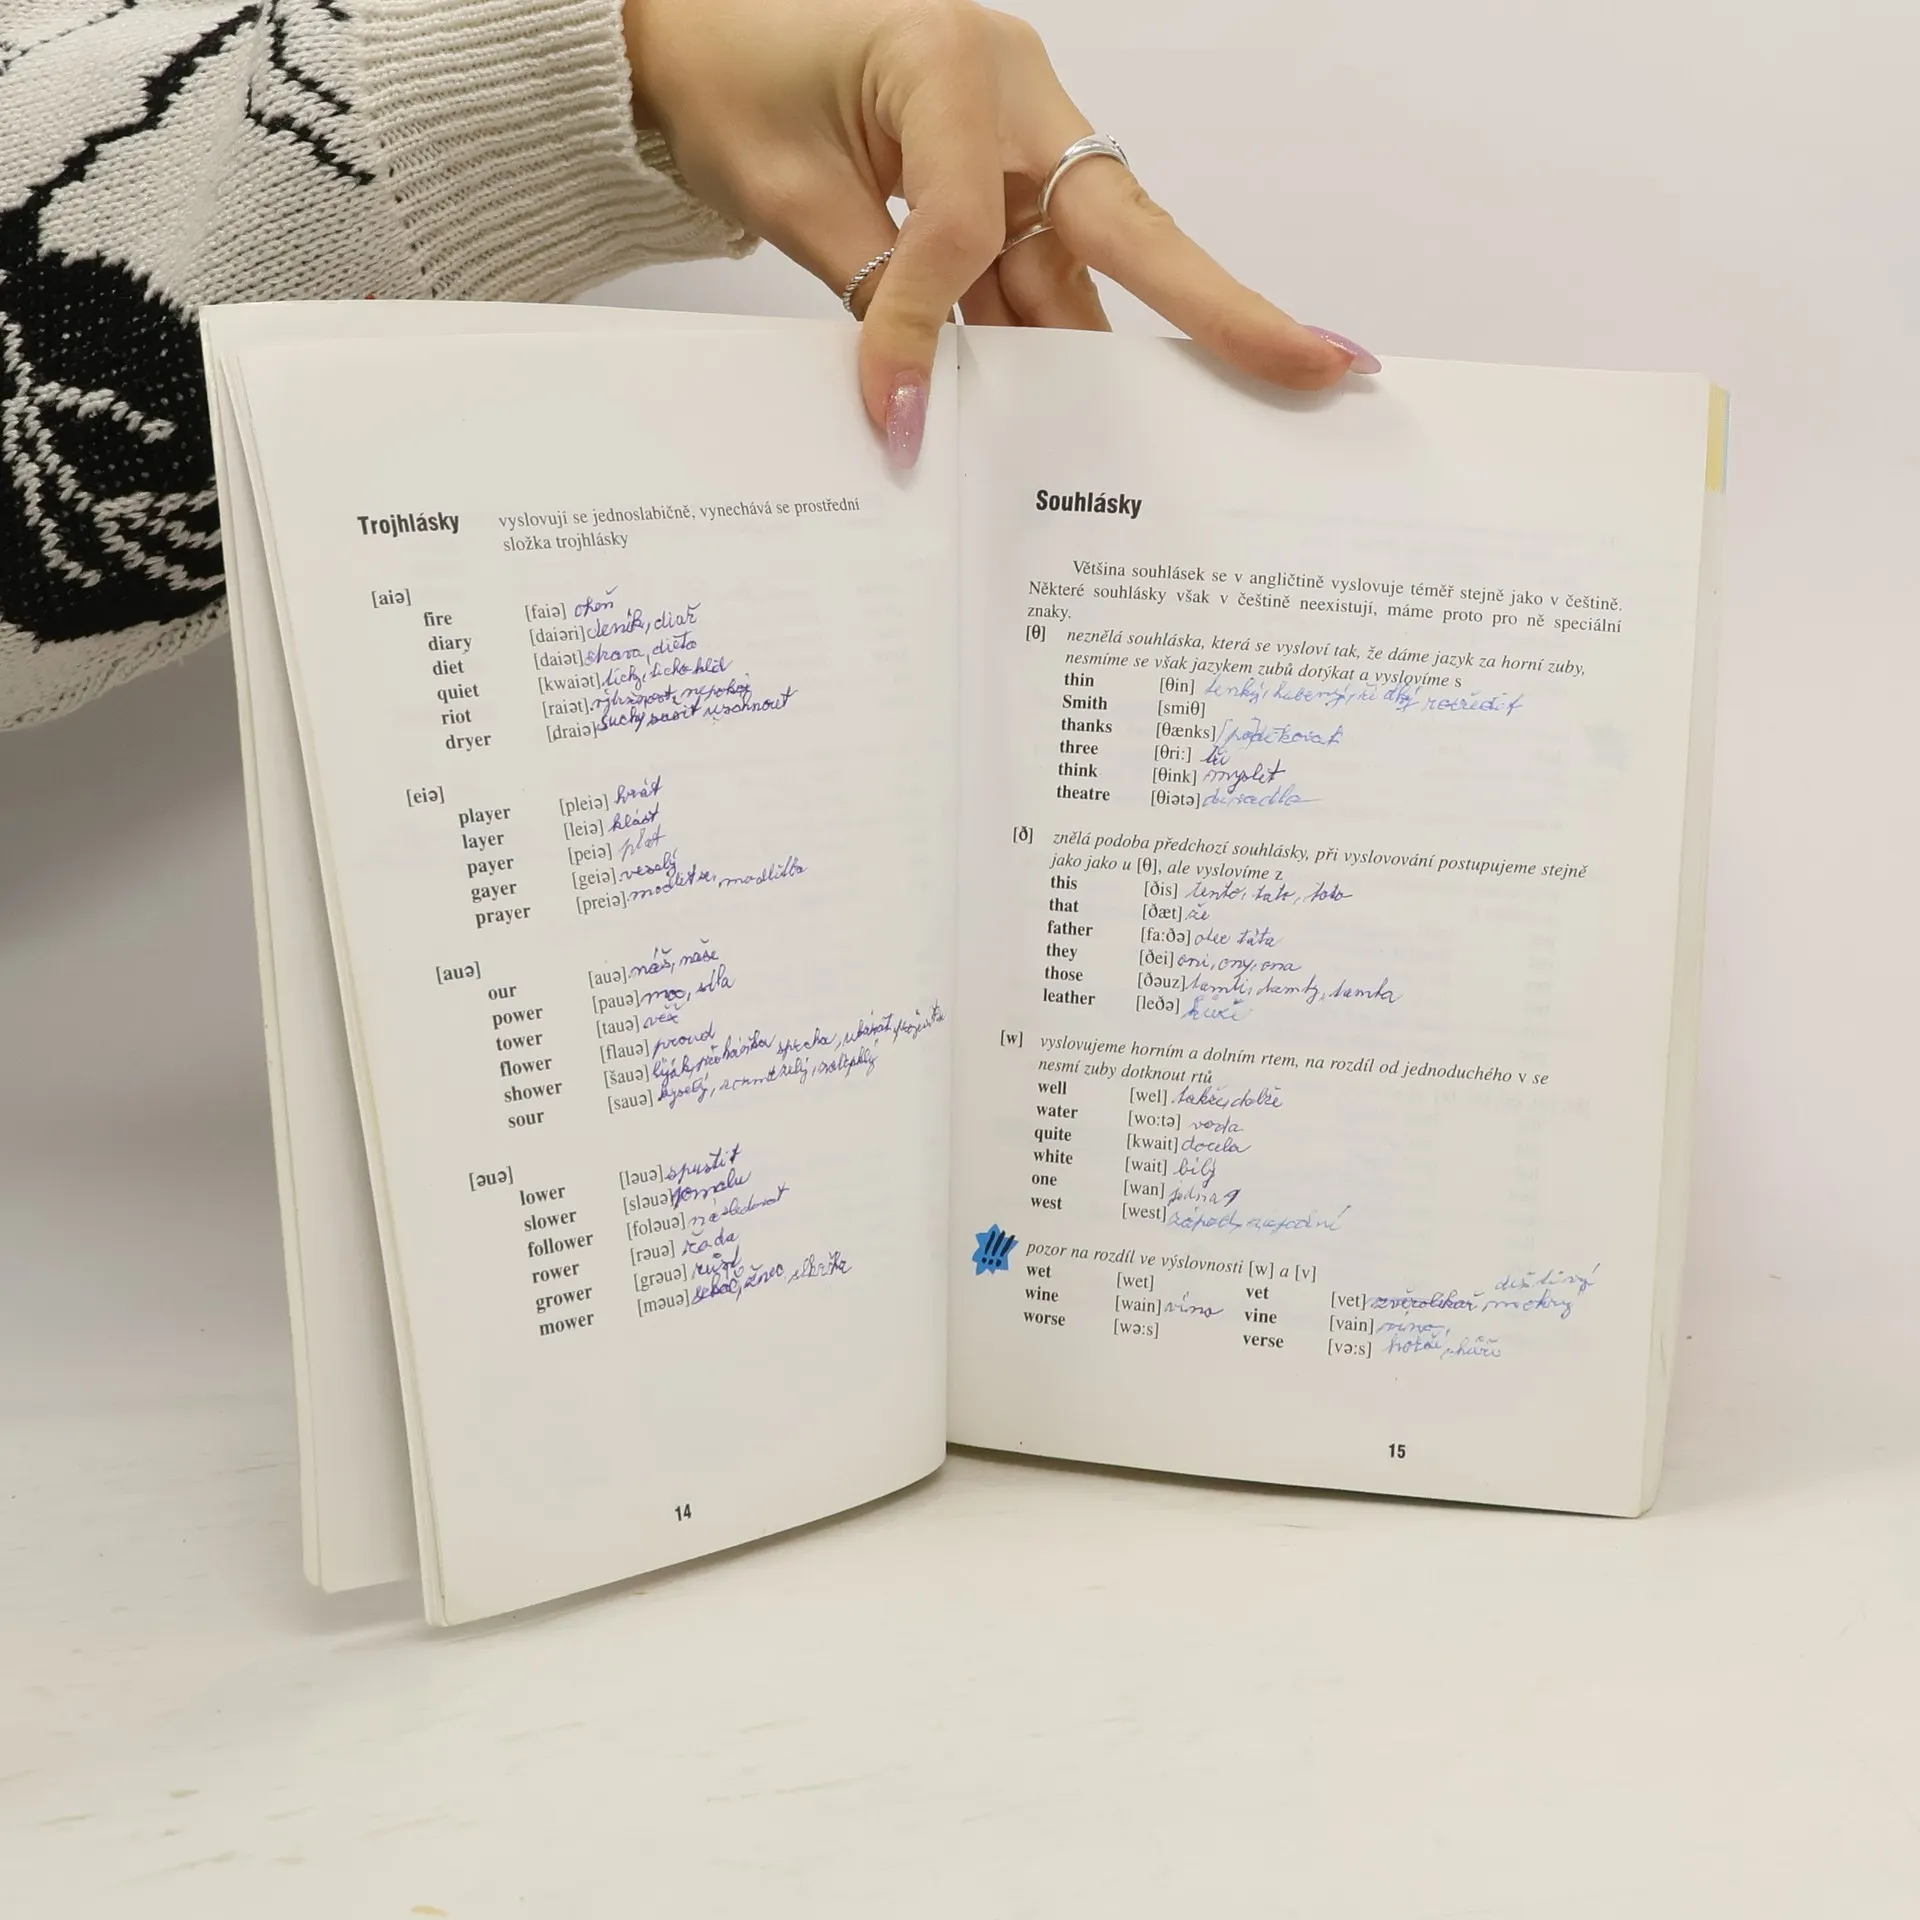 Trojhlásky vyslovují se jednoslabičně, vynechává se prostřední
složka trojhlásky
[aiə]
fire [faiə] oheň
diary [daiəri] deník, diař
diet [daiət] strava, dieta
quiet [kwaiət] tichý, ticho klid
riot [raiət] výtržnost, nepokoj
dryer [draiə] suchý sušit uschnout
[eiə]
player [pleiə] hrát
layer [leiə] klást
payer [peiə] plat
gayer [geiə] veselý
prayer [preiə] modlit se, modlitba
[auə]
our [auə] náš, naše
power [pauə] moc, síla
tower [tauə] věž
flower [flauə] proud
shower [šauə] sprcha
sour [sauə] kyselý
[əuə]
lower [ləuə] spustit
slower [sləuə] pomalu
follower [foləuə] následovat
rower [rəuə] řada
grower [grəuə] růst
mower [məuə] sekač, žnec
14
Souhlásky
Většina souhlásek se v angličtině vyslovuje téměř stejně jako v češtině.
Některé souhlásky však v češtině neexistují, máme proto pro ně speciální
znaky.
[θ] neznělá souhláska, která se vysloví tak, že dáme jazyk za horní zuby,
nesmíme se však jazykem zubů dotýkat a vyslovíme s
thin [θin] tenký, hubený, řídký
Smith [smiθ]
thanks [θænks] poděkovat
three [θri:] tři
think [θink] myslet
theatre [θiətə] divadlo
[ð] znělá podoba předchozí souhlásky, při vyslovování postupujeme stejně
jako jako u [θ], ale vyslovíme z
this [ðis] tento, tato, toto
that [ðæt] že
father [fa:ðə] otec táta
they [ðei] oni, ony, ona
those [ðəuz] tamti, tamty, tamta
leather [leðə] kůže
[w] vyslovujeme horním a dolním rtem, na rozdíl od jednoduchého v se
nesmí zuby dotknout rtů
well [wel] také, dobře
water [wo:tə] voda
quite [kwait] docela
white [wait] bílý
one [wan] jedna 1
west [west] západ, západní
!!! pozor na rozdíl ve výslovnosti [w] a [v]
deštivý
wet [wet] vet [vet] zvěrolékař mokrý
wine [wain] víno vine [vain] víno,
worse [wə:s] verse [və:s]
15